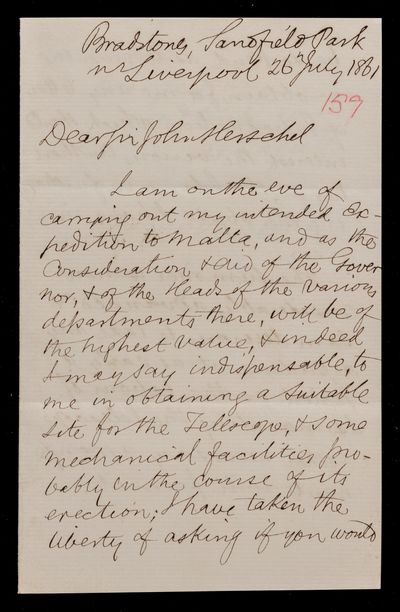 Bradstones, Sandfield Park
nr Liverpool 26th July 1861
159
Dear Sir John Herschel
I am on the eve of
carrying out my intended Ex-
pedition to Malta, and as the
Consideration & aid of the Gover
nor, & of the Heads of the various
departments there, will be of
the highest value, & indeed
I may say indispensable, to
me in obtaining a suitable
site for the Telescope, & some
mechanical facilities pro-
bably in the course of its
erection; I have taken the
liberty of asking if you would